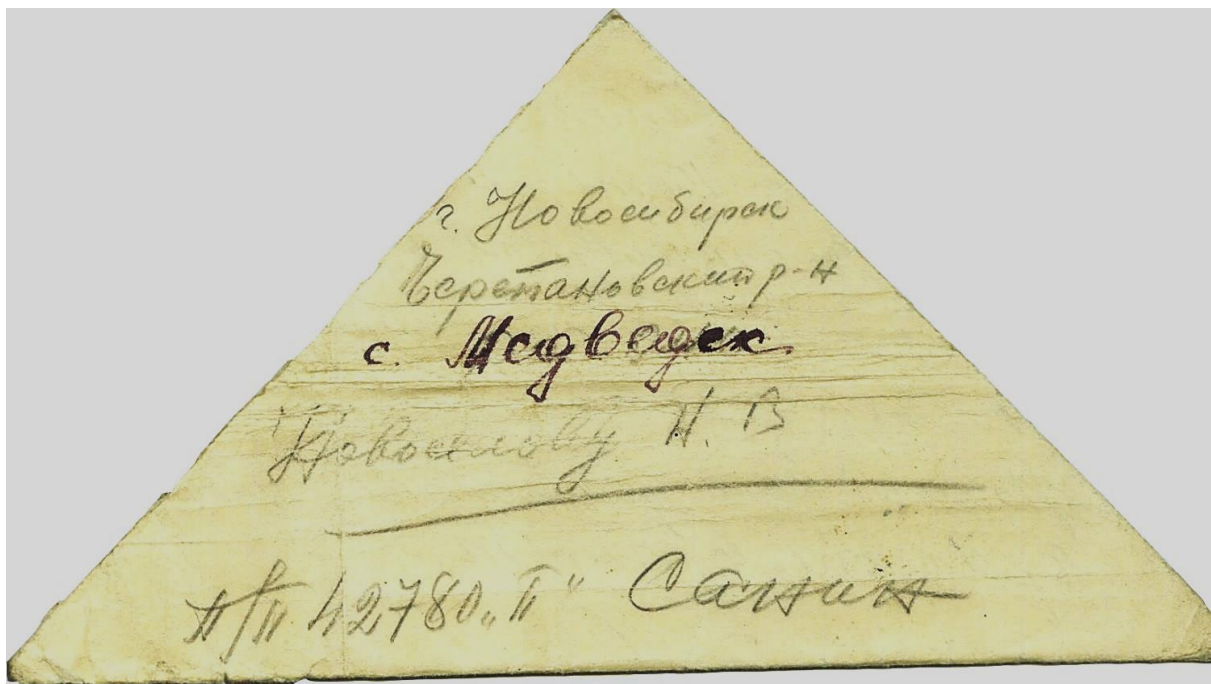 г. Новосибирск
Черепановский р-н
с. Медведск
Новоселову Н. В
п/п 42780 „П" Санин